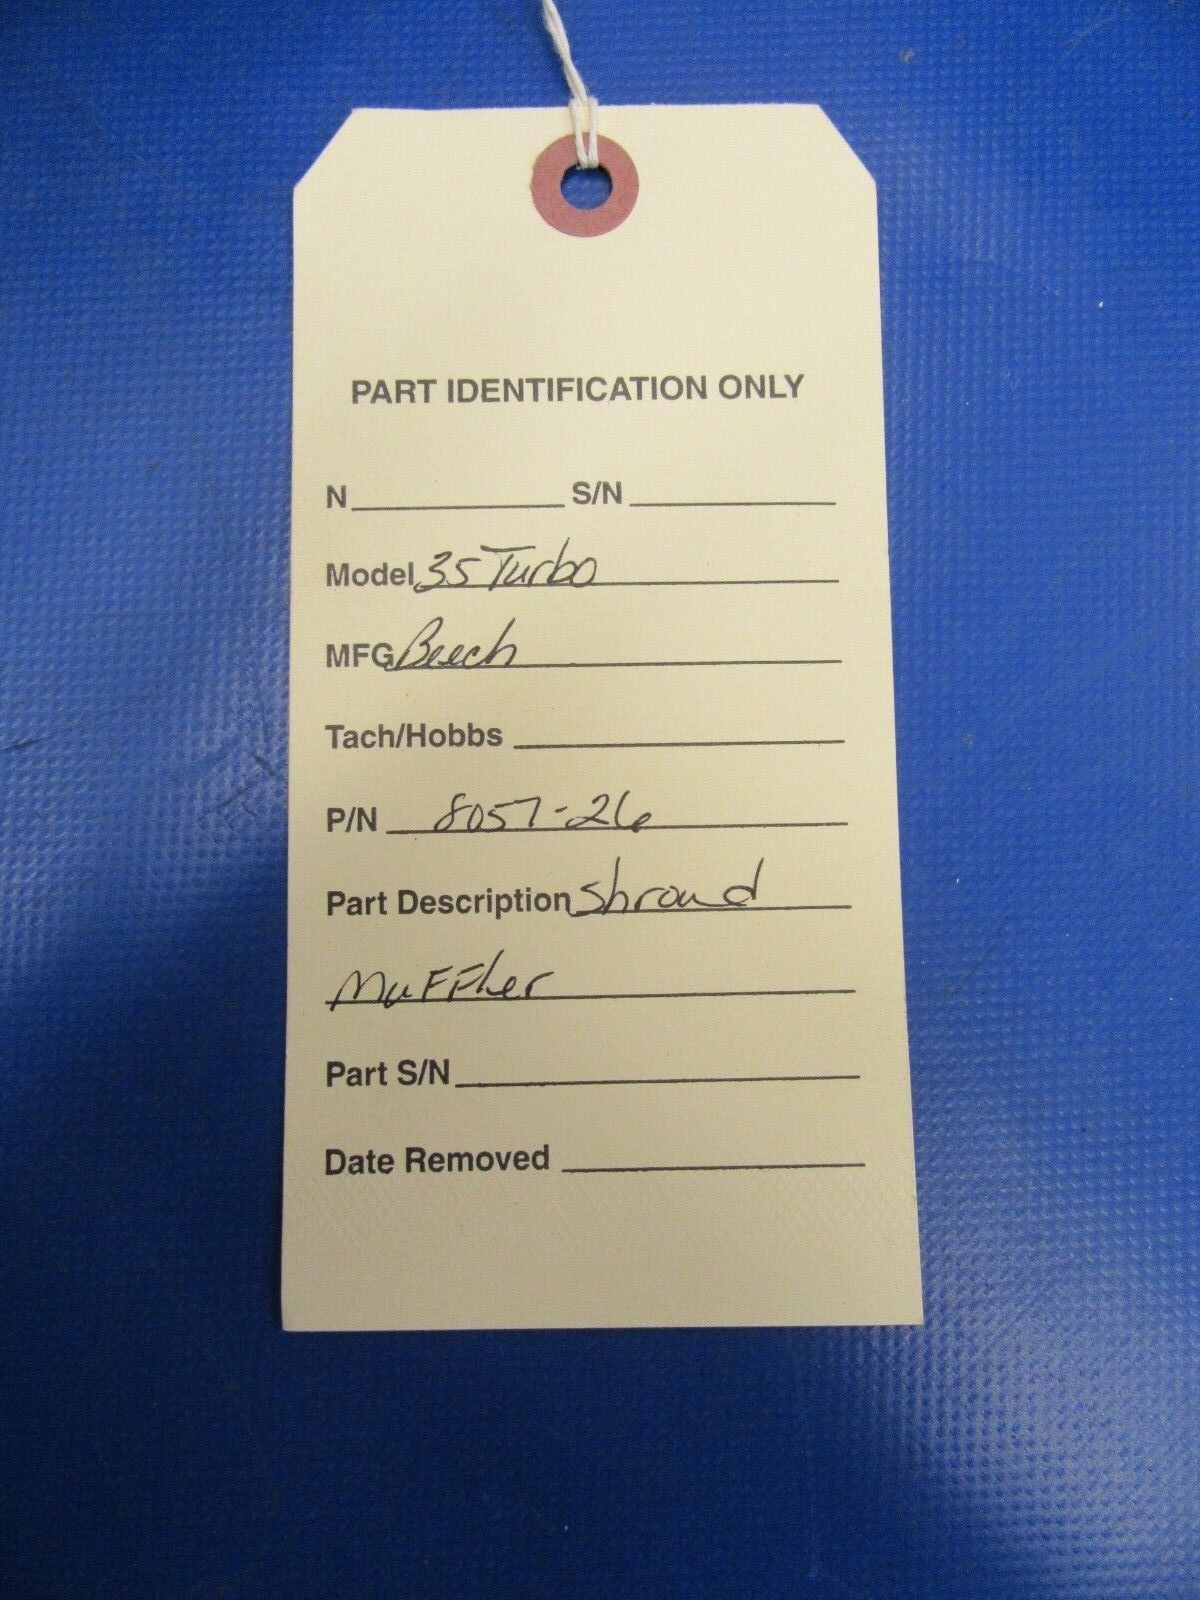 PART IDENTIFICATION ONLY
N S/N
Model 35 Turbo
MFG Beech
Tach/Hobbs
P/N 8057-26
Part Description Shroud
Muffler
Part S/N
Date Removed